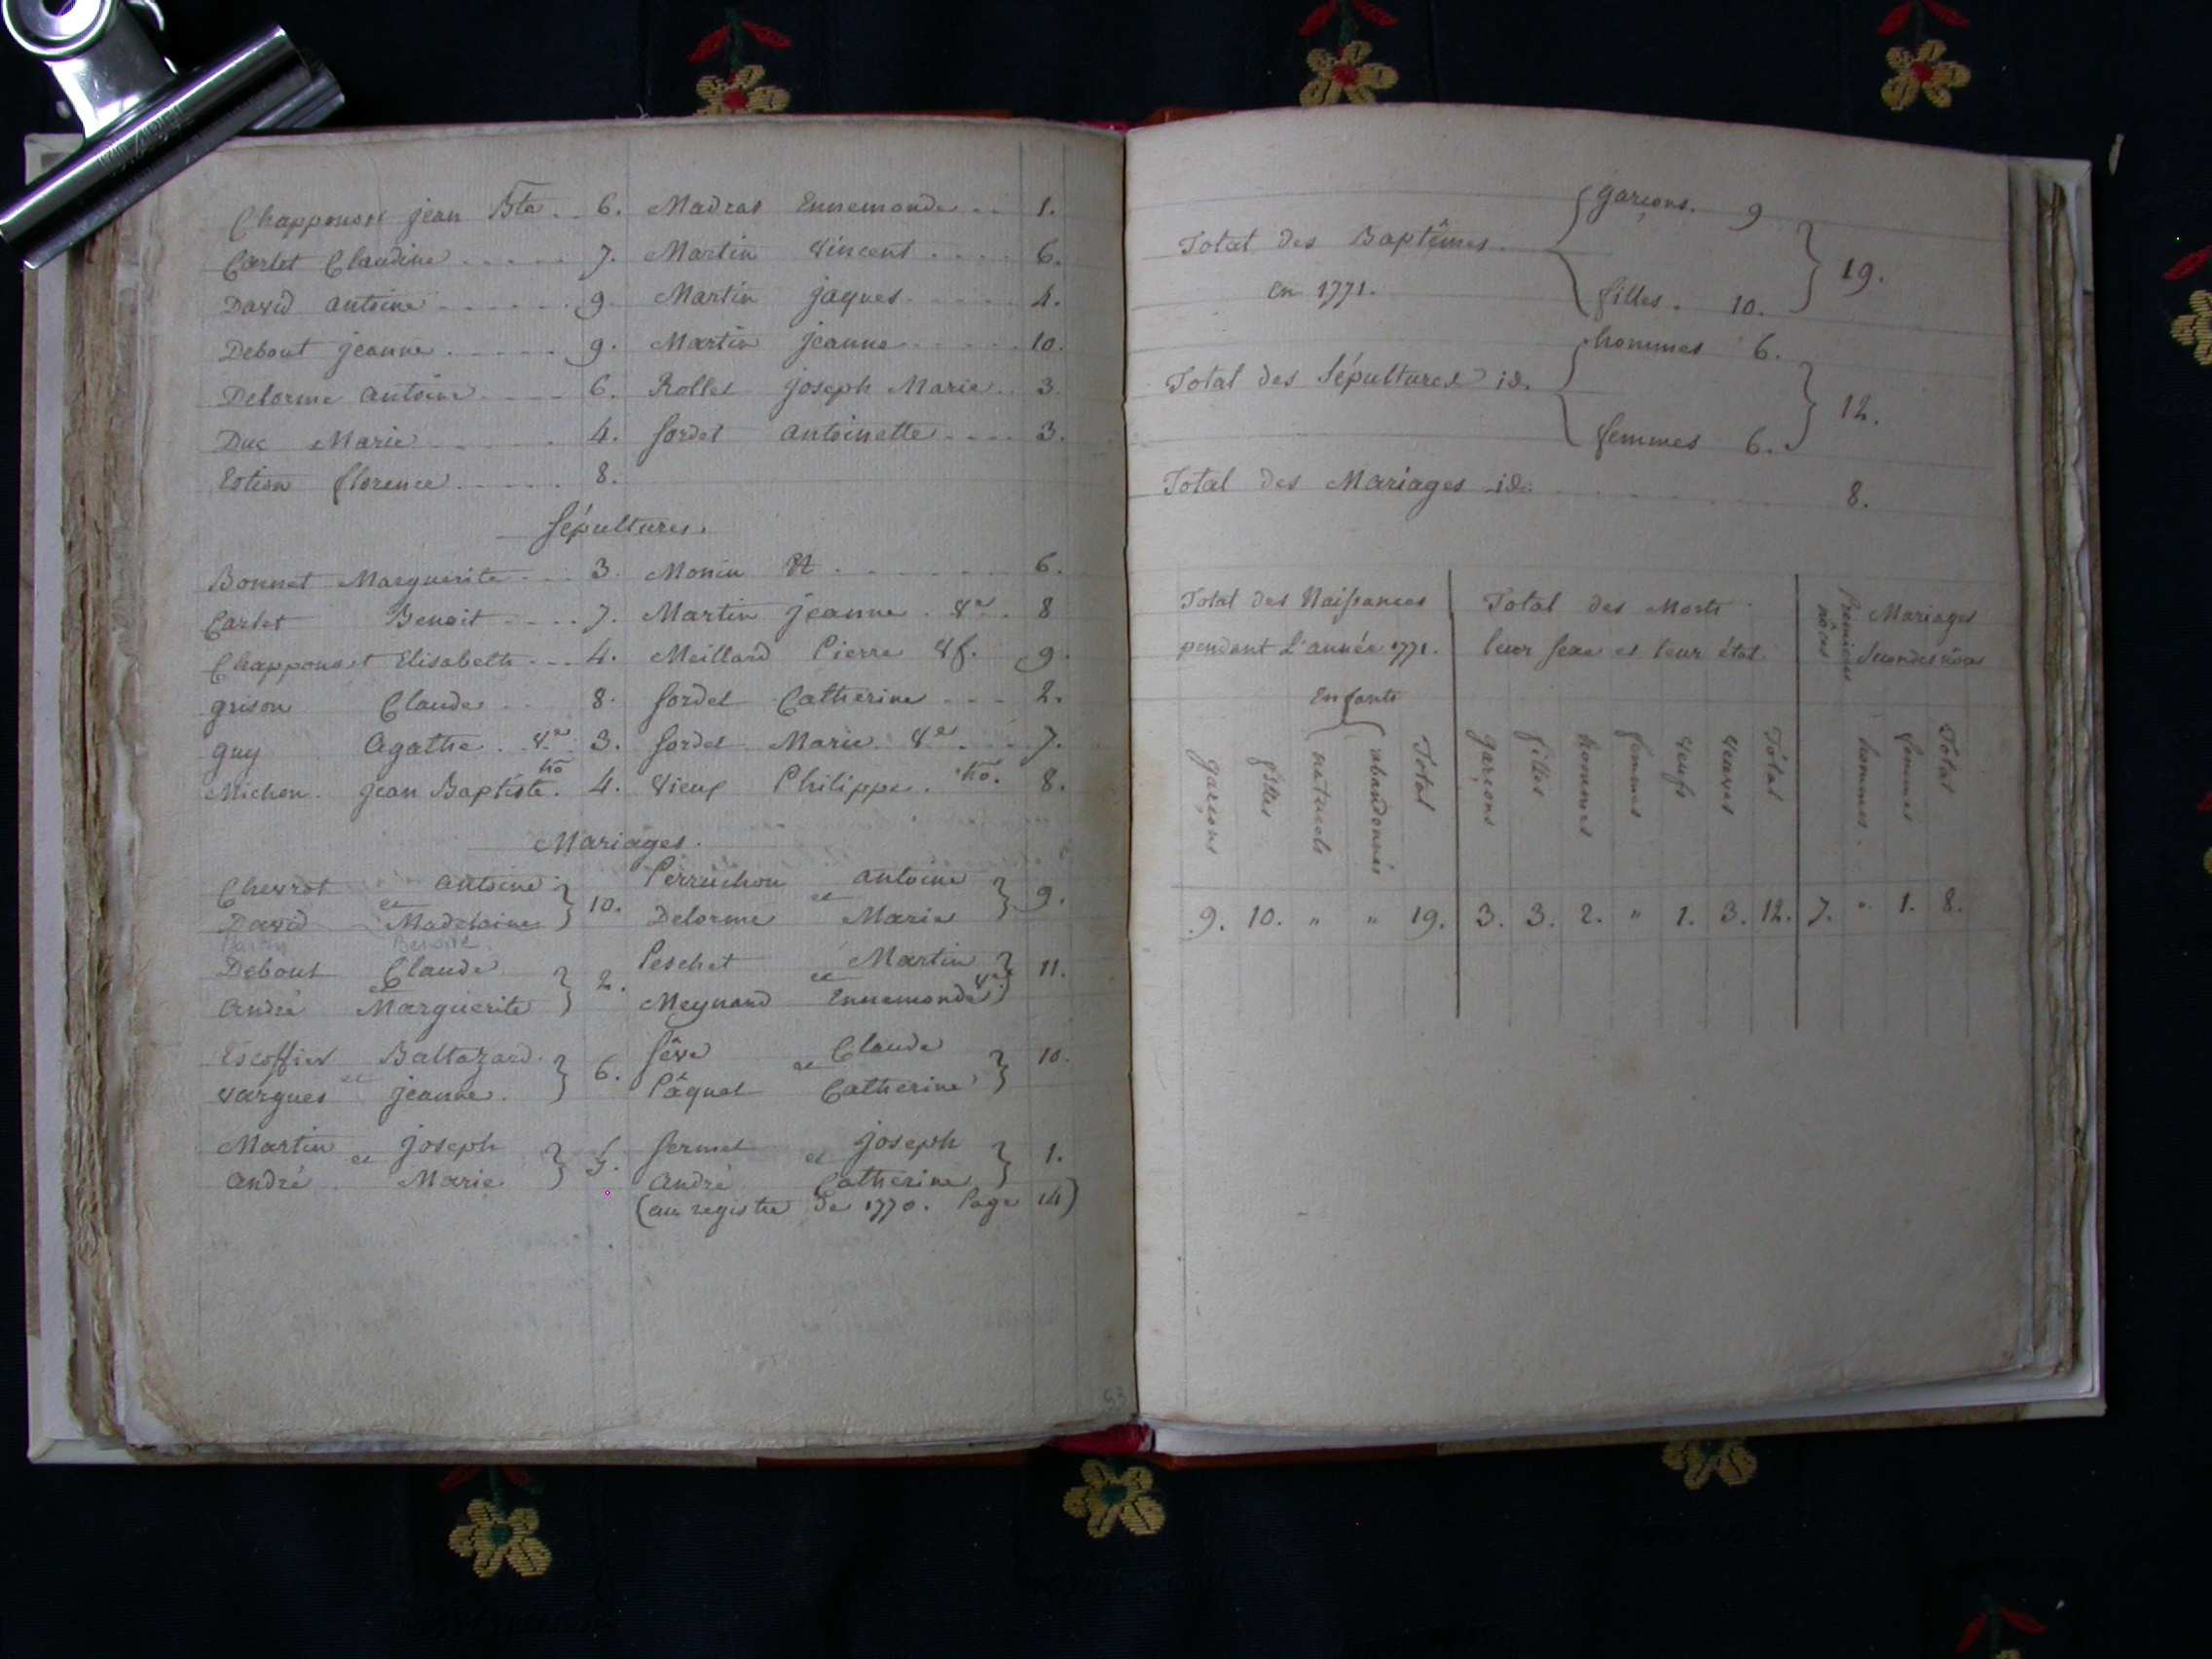 Chapponost jean Bte. .. 6. Madras Ennemonde .. 1.
Carlet Claudine ..... 7. Martin Vincent .... 6.
David antoine ...... 9. Martin jaques ..... 4.
Debout jeanne ..... 9. Martin jeanne ..... 10.
Delorme antoine .... 6. Rollet joseph Marie .. 3.
Duc Marie ..... 4. Sordet antoinette .... 3.
florence ..... 8.
Sépultures.
Bonnet Marguerite ... 3. Monin ....... 6.
Carlet Benoit .... 7. Martin jeanne. Ve. 8
Chapponost Elisabeth ... 4. Meillard Pierre Vf. 9.
grison Claude .. 8. Sordet Catherine ... 2.
guy Agathe. Ve. 3. Sordet Marie Ve. ... 7.
Michon. jean Baptiste. hõ 4. Vieux Philippe. hõ. 8.
Mariages.
Chevrot antoine
et
David Madelaine } 10. Perruchon antoine
et
Delorme Marie } 9.
Benoite
Debout Claude
et
André Marguerite } 2. Peschet Martin
et
Meynard Ennemonde Ve. } 11.
Escoffier Baltazard.
et
Vargues jeanne. } 6. Sêve Claude
et
Pâquet Catherine } 10.
Martin joseph
et
André Marie } 5. Sermet joseph
et
André Catherine } 1.
(au registre de 1770. Page 14)
53
Total des Baptêmes. { garçons. 9
en 1771. filles. 10. } 19.
Total des Sépultures id. { hommes 6.
femmes 6. } 12.
Total des Mariages id. 8.
Total des Naissances
pendant l'année 1771.
Total des Morts
leur sexe et leur état.
Premieres nôces
Mariages
Secondes nôces
Enfants
garçons filles naturels abandonnés Total garçons filles hommes femmes veufs veuves Total hommes. femmes Total
9. 10. " " 19. 3. 3. 2. " 1. 3. 12. 7. " 1. 8.